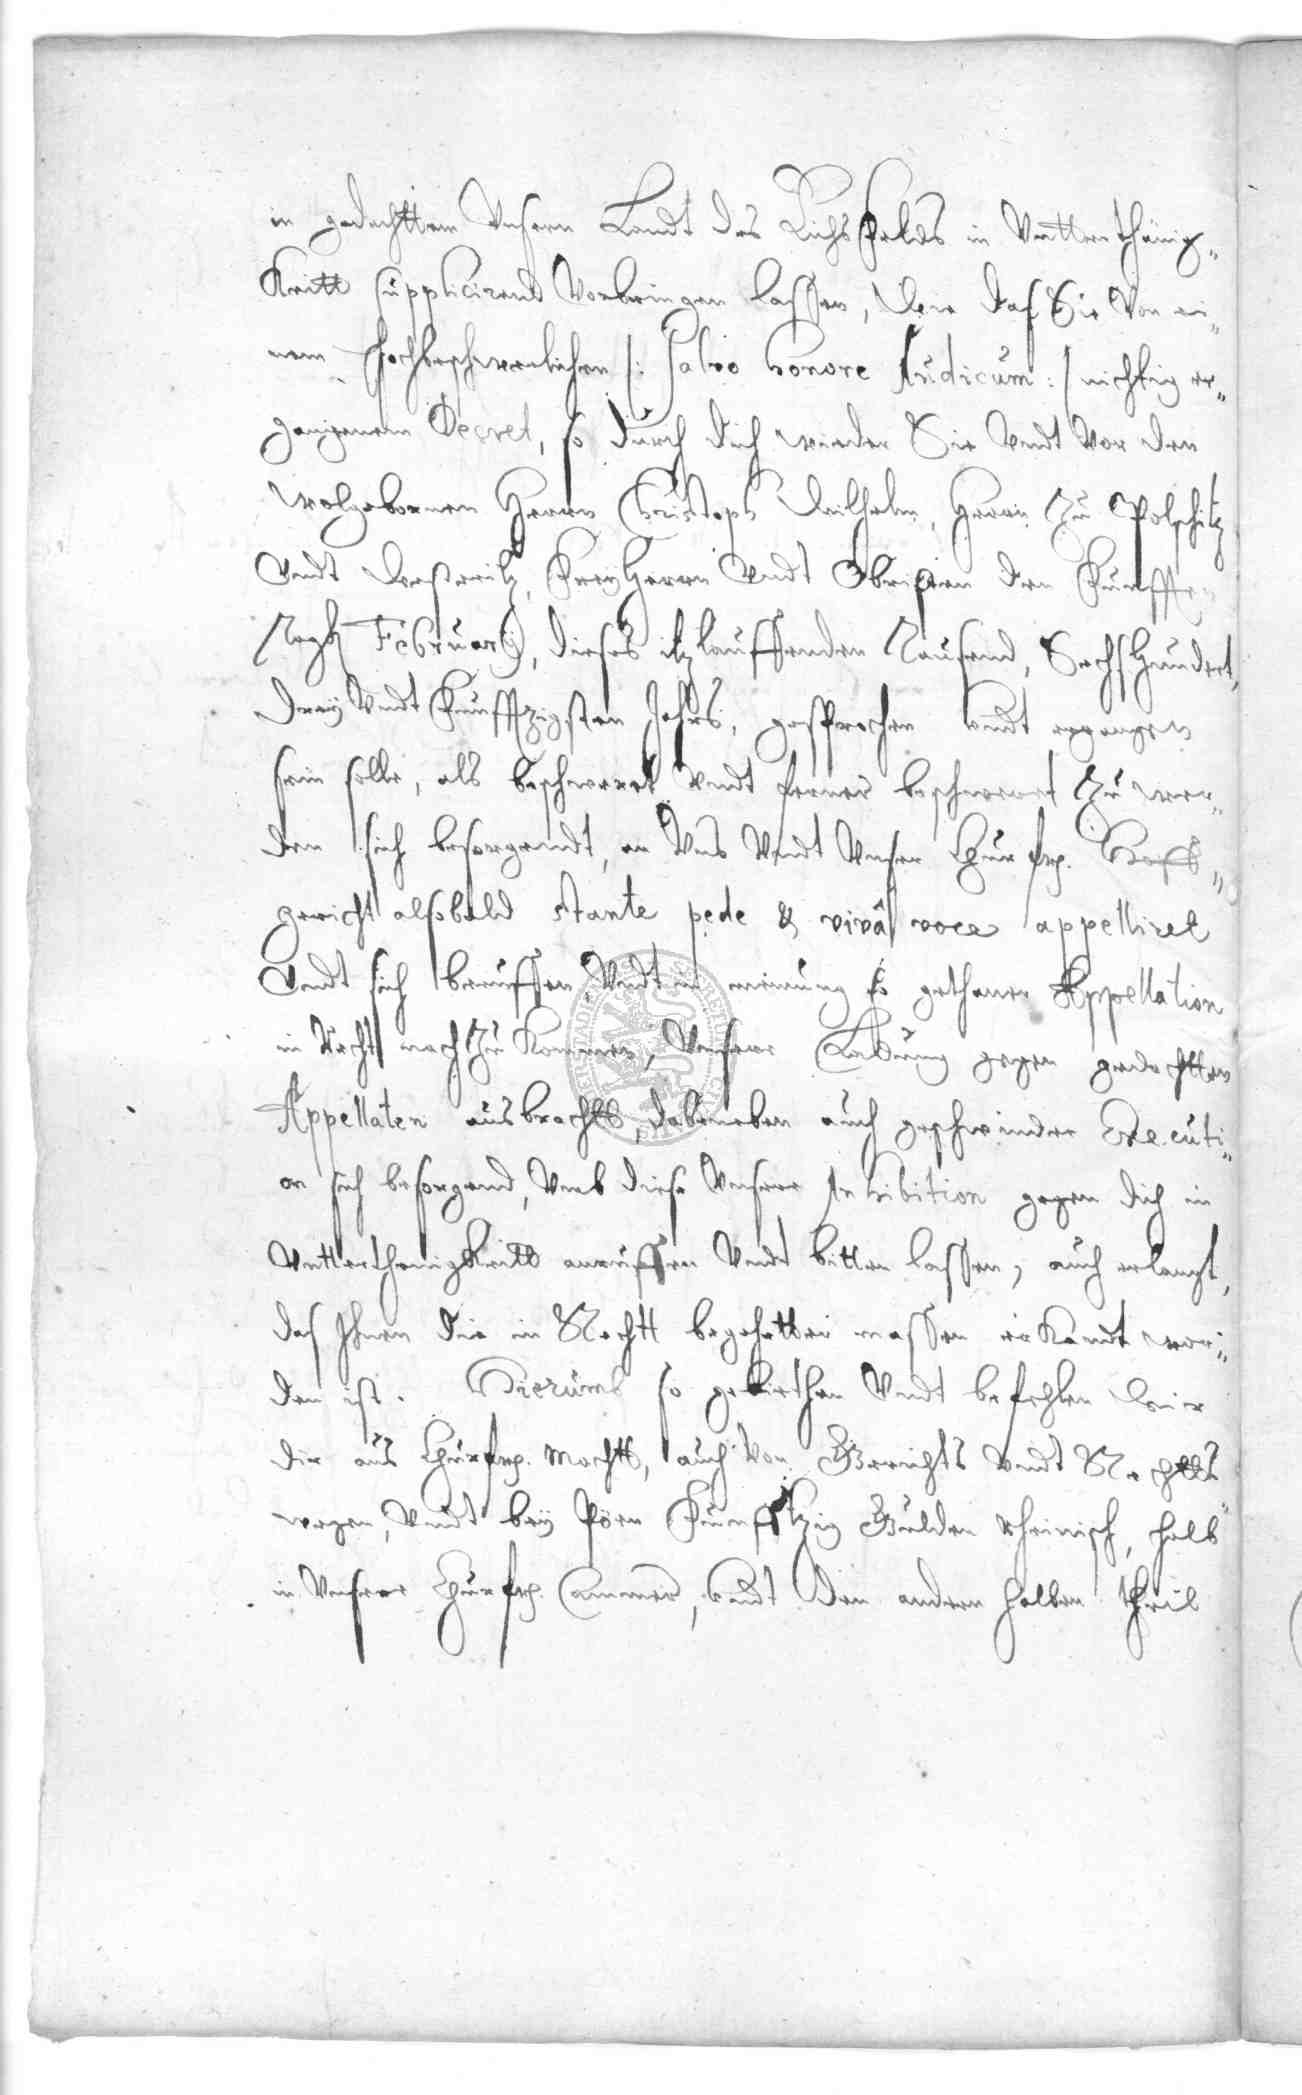 in gedachttem Unserm Landt des Eichsfelds in Untterthänig„
Keitt supplicirend Vorbringen lassen, Wie daß Sie Von ei„
nem Hochbeschwerlichen /: Salvo honore Iudicum :/ nichtig er„
gangenem Decret, so durch dich wieder Sie Undt Vor den
wolgebornen Herrn Christoph Wilhelm, Herrn Zu Polschitz
Undt FreyHerrn Undt Obristen den Funfften
Februarij, dieses itzlauffenden Tausend, SechsHundert,
Drey Undt Funffzigsten Jahrs, gesprochen undt ergangen
sein solle, als beschweret Undt ferner beschweret Zu wer„
den sich besorgendt, an Uns Undt Unser Churfrg. Hoff„
gericht alsbald stante pede & vivâ voce appelliret
Undt sich beruffen, Undt in meinung gethaner Appellation
in Recht nach Zu Kommen, Unsere Ladung gegen gedachtten
Appellaten ausbracht, dabeneben auch geschwinder Executi„
on sich besorgend, Umb diese Unsere Inhibition gegen dich in
UnttertheinigKeitt anruffen Undt bitten lassen, auch erlangt,
das Ihnen die in Rechtt begehrtter massen erKandt wor„
den ist. Hierumb so gebiethen Undt befehlen Wir
dir aus Churfrg. Machtt, auch Von Gerichts Undt Rechtts
wegen, Undt bey Pöen Funfftzig Gulden rheinisch, halb
in Unsere Churfrg. Cammer, Undt den andern halben theil